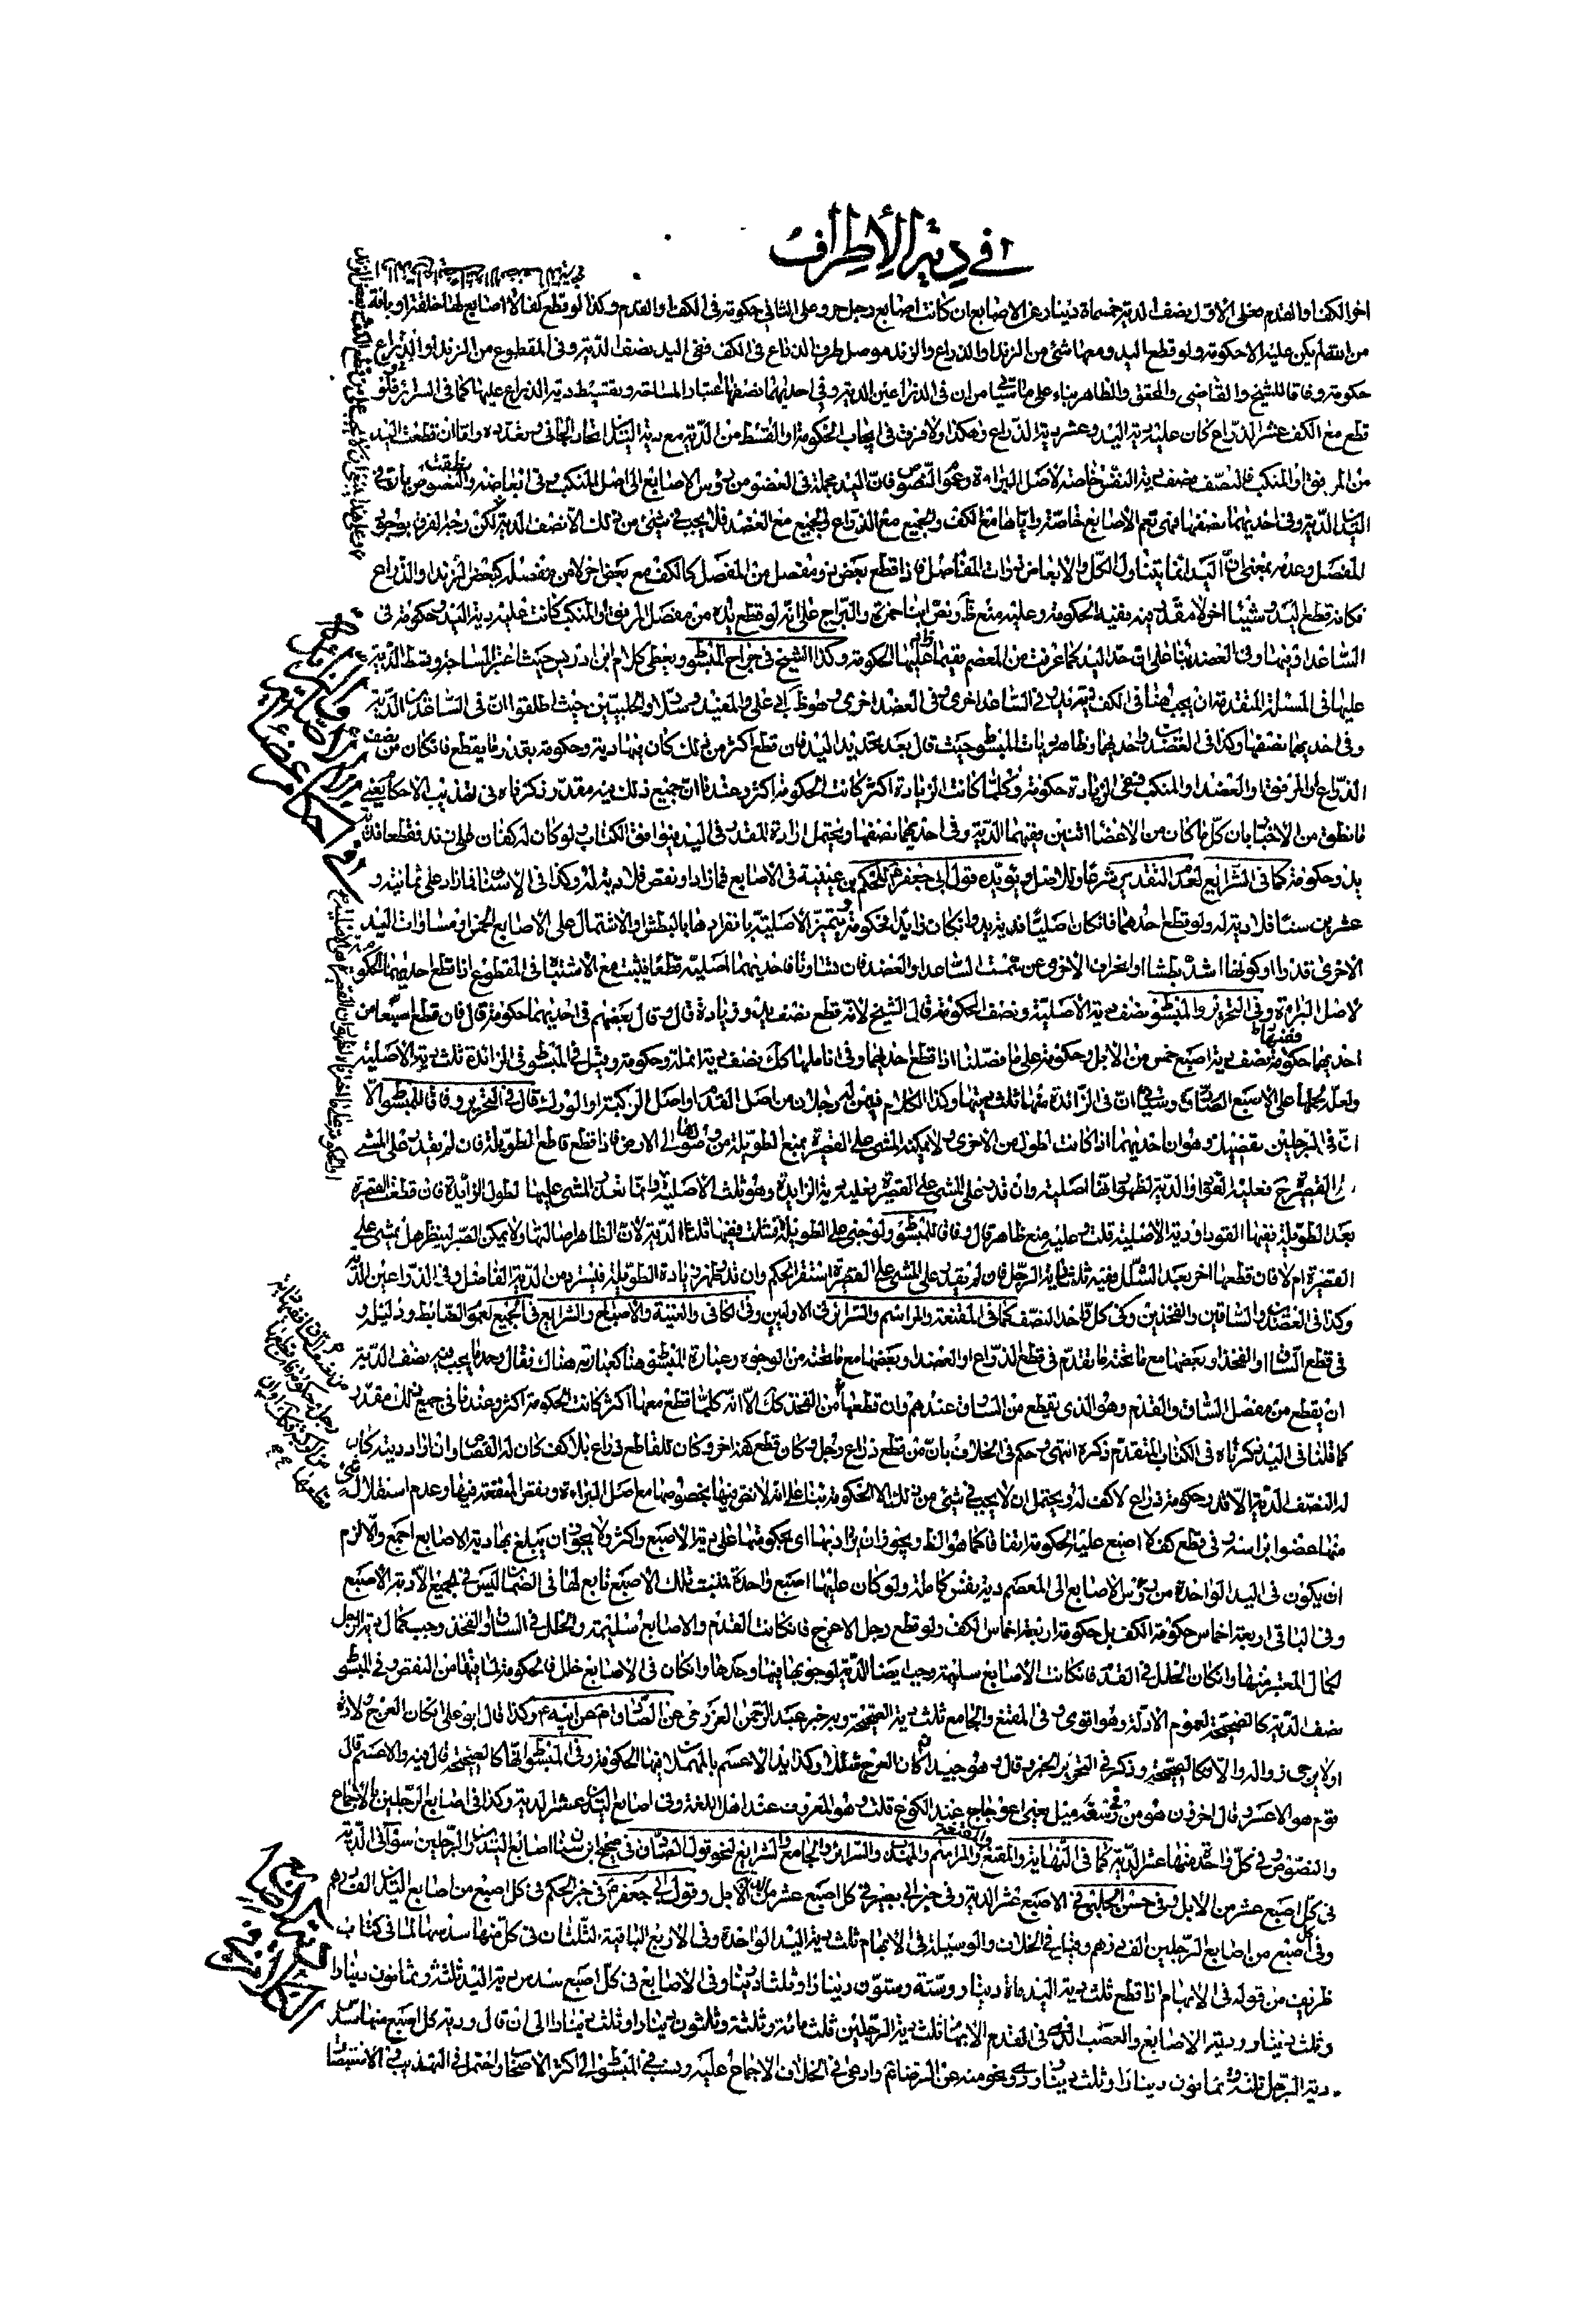 في دية الأطراف
اخر الكف او القدم فعلى الاول نصف الدية خمسمائة دينار عن الاصابع ان كانت اصابع رجل حر وعلى الثاني حكومة في الكف او القدم وكذا لو قطع كفا لا اصابع لها خلقة او بافة
من الله لم يكن عليه الا حكومة ولو قطع اليد ومعها شئ من الزند او الذراع والزند موصل طرف الذراع في الكف ففي اليد نصف الدية وفي المقطوع من الزند او الذراع
حكومة وفاقا للشيخ والقاضي والمحقق والظاهر بناء على ما سيأتي من ان في الذراعين الدية وفي احديهما نصفها اعتبار المساحة وتقسيط دية الذراع عليها كما في السرائر فلو
قطع مع الكف عشر الذراع كان عليه دية اليد وعشر دية الذراع وهكذا ولا فرق في ايجاب الحكومة او القسط من الدية مع دية اليد اتحاد الجاني وتعدده واما ان قطعت اليد
من المرفق او المنكب فالنصف نصف دية النفس خاصة لاصل البراءة وعموم النصوص فان اليد مجملة في العضو من رؤس الاصابع الى اصل المنكب وفي ابعاضه والنصوص نطقت بان في
اليدين الدية وفي احديهما نصفها فهي تعم الاصابع خاصة واياها مع الكف والجميع مع الذراع والجميع مع العضد فلا يجب في شئ من ذلك الا نصف الدية لكن رخم الفرق بوجود
المفصل وعدمه بمعنى ان اليد انما يتناول الكل والابعاض ذوات المفاصل فاذا قطع بعض ذو مفصل من المفصل كالكف مع بعض اخر لا من مفصله كبعض الزند او الذراع
فكانه قطع اليد وشيئا اخر لا مقدر فيه ففيه الحكومة وعليه منع ظ ونص ابنا حمزة والبراج على انه لو قطع يده من مفصل المرفق او المنكب كانت عليه دية اليد وحكومة في
الساعد او فيهما وفي العضد بناء على ان حد اليد كما عرفت من المعصم ففيما عليها الحكومة وكذا الشيخ في جراح المبسوط ويعطى كلام ابن ادريس حيث اعتبر المساحة وقسط الدية
عليها في المسئلة المتقدمة ان يجب هنا في الكف دية يد وفي الساعد اخرى وفي العضد اخرى وهو ظ ابي علي والمفيد وسلار والحلبيين حيث اطلقوا ان في الساعدين الدية
وفي احديهما نصفها وكذا في العضدين واحديهما وظاهر ديات المبسوط حيث قال بعد تحديد اليد فان قطع اكثر من ذلك كان فيها دية وحكومة بقدر ما يقطع فان كان من نصف
الذراع او المرفق او العضد او المنكب ففي الزيادة حكومة وكلما كانت الزيادة اكثر كانت الحكومة اكثر وعندنا ان جميع ذلك فيه مقدر ذكرناه في تهذيب الاحكام يعني
ما نطق من الاخبار بان كل ما كان من الاعضاء اثنين ففيهما الدية وفي احديهما نصفها ويحتمل ارادة المقدر في اليد فيوافق الكتاب ولو كان له كفان على زند فقطعا فدية
يد وحكومة كما في الشرايع لعدم التقدير شرعا وللاصل ويؤيده قول ابي جعفر ع للحكم بن عيينة في الاصابع فما زاد او نقص فلا دية له وكذا في الاسنان فما زاد على ثمانية و
عشرين سنا فلا دية له ولو قطع احدهما فان كان اصليا فدية يد وان كان زايدا فحكومة ويتميز الاصلية بانفرادها بالبطش والاشتمال على الاصابع الخمس او مساوات اليد
الاخرى قدرا او كونها اشد بطشا او انحراف الاخرى عن سمت الساعد او العضد فان تساوتا فاحديهما اصلية قطعا فيثبت مع الاشتباه في المقطوع اذا قطع احديهما الحكومة
لاصل البراءة وفي التحرير والمبسوط نصف دية الاصلية ونصف الحكومة قال الشيخ لانه قطع نصف يد وزيادة قال وقال بعضهم في احديهما حكومة قال فان قطع اصبعا من
احديهما ففيها حكومة نصف دية اصبع خمس من الابل وحكومة على ما فصلنا اذا قطع احديهما وفي اناملها كك نصف دية انملة وحكومة وقيل في المبسوط في الزائدة ثلث دية الاصلية
ولعله حملها على الاصبع الصادق وسيأتي ان في الزائدة منها ثلث ديتها وكذا الكلام فيمن له رجلان من اصل القدم او اصل الركبة او الورك قال في التحرير وفاقا للمبسوط الا
ان في الرجلين تفصيلا وهو ان احديهما اذا كانت اطول من الاخرى ولا يمكنه المشى على القصيرة يمنع الطويلة من وصولها الى الارض فاذا قطع قاطع الطويلة فان لم يقدر على المشى
على القصيرة ح فعليه القود او الدية لظهور انها اصلية وان قدر على المشى على القصيرة فعليه دية الزايدة وهو ثلث الاصلية وانما تعذر المشى عليها لطول الزايدة فان قطعت القصيرة
بعد الطويلة ففيها القود او دية الاصلية قلت وعليه منع ظاهر قال وفاقا للمبسوط ولو جنى على الطويلة فشلت ففيها ثلثا الدية لان الظاهر اصالتها ولا يمكن الصبر لينظر هل يمشى على
القصيرة ام لا فان قطعها اخر بعد الشلل ففيه ثلث دية الرجل فان لم يقدر على المشى على القصيرة استقر الحكم وان قدر ظهر زيادة الطويلة فيسترد من الدية الفاضل وفي الذراعين الدية
وكذا في العضدين والساقين والفخذين وفي كل واحد النصف كما في المقنعة والمراسم والسرائر في الاولين وفي الكافي والغنية والاصباح والشرايع في الجميع لعموم الضابط ودليله و
في قطع الساق او الفخذ او بعضها مع ما تحته ما تقدم في قطع الذراع او العضد او بعضها مع ما تحته من الوجوه وعبارة المبسوط هنا كعبارته هناك فقال وحد ما يجب فيه نصف الدية
ان يقطع من مفصل الساق والقدم وهو الذي يقطع من الساق عندهم وان قطعها من الفخذ كك الا انه كلما قطع معها اكثر كانت الحكومة اكثر وعندنا في جميع ذلك مقدر
كما قلنا في اليد ذكرناه في الكتاب المتقدم ذكره انتهى وحكم في الخلاف بان من قطع ذراع رجل وكان قطع كفه اخر وكان للقاطع ذراع بلا كف كان له القصاص وان اراد ديته كان
له نصف الدية الا قدر حكومة ذراع لا كف له ويحتمل ان لا يجب في شئ من ذلك الا الحكومة بناء على انه لا نص فيها بخصوصها مع اصل البراءة ونقص المنفعة فيها وعدم استقلال شئ
منها عضوا براسه وفي قطع كف لا اصبع عليه الحكومة اتفاقا كما هو الظ ويجوز ان يراد بها اى بحكومتها على دية الاصبع واكثر ولا يجوز ان يبلغ بها دية الاصابع اجمع والا لزم
ان يكون في اليد الواحدة من رؤس الاصابع الى المعصم دية نفس كاملة ولو كان عليها اصبع واحدة فنبت تلك الاصبع تابع لها في الضمان اليس في الجميع الا دية الاصبع
وفي الباقي اربعة اخماس حكومة الكف بل حكومة اربعة اخماس الكف ولو قطع رجل الاعرج فان كانت القدم والاصابع سليمة والخلل في الساق او الفخذ وجب كمال دية الرجل
لكمال المعتبر منها وان كان الخلل في القدم فان كانت الاصابع سليمة وجب ايضا الدية لوجوبها فيها وحدها وان كان في الاصابع خلل فالحكومة لما فيها من النقص وفي المبسوط
نصف الدية كالصحيحة لعموم الادلة وهو اقوى وفي المقنع والجامع ثلث دية الصحيحة وبه خبر عبد الرحمن العزرمى عن الصادق ع عن ابيه ع وكذا قال ابو علي ان كان العرج ولادة
اولا يرجى زواله والا فكالصحيحة وذكر في التحرير الخبر وقال وهو جيد ان كان العرج شللا وكذا يد الاعسم بالمهملات فيها الحكومة وفي المبسوط انها كالصحيحة قال فيه والاعسم قال
قوم هو الاعسر وقال اخرون هو من في رسغه ميل يعنى اعوجاج عند الكوع قلت وهو المعروف عند اهل اللغة وفي اصابع اليدين عشر الدية وكذا في اصابع الرجلين بالاجماع
والنصوص في كل واحدة منها عشر الدية كما في النهاية والمقنع والمقنعة والمراسم والمهذب والسرائر والجامع والشرايع لنحو قول الصادق ع في صحيح ابن سنان اصابع اليدين والرجلين سواء في الدية
في كل اصبع عشر من الابل وفي حسن الحلبي في الاصبع عشر الدية وفي خبر ابي بصير في كل اصبع عشر من الابل وقول ابي جعفر ع في خبر الحكم في كل اصبع من اصابع اليدين الف درهم
وفي كل اصبع من اصابع الرجلين الف درهم وقيل في الخلاف والوسيلة في الابهام ثلث دية اليد الواحدة وفي الاربع الباقية الثلثان في كل منها سدسها لما في كتاب
ظريف من قوله في الابهام اذا قطع ثلث دية اليد مائة دينار وستة وستون دينارا وثلثا دينار وفي الاصابع في كل اصبع سدس دية اليد ثلثة وثمانون دينارا
وثلث دينار ودية الاصابع والعصب الذي في القدم الابهام ثلث دية الرجلين ثلث مائة وثلثة وثلثون دينارا وثلث دينارا الى ان قال ودية كل اصبع منها سدس
دية الرجل ثلثة وثمانون دينارا وثلث دينار ونحو منه عن الرضا ع وادعى في الخلاف الاجماع عليه ونسب في المبسوط الى اكثر الاصحاب واحتمل في التهذيب وفي الاستبصار